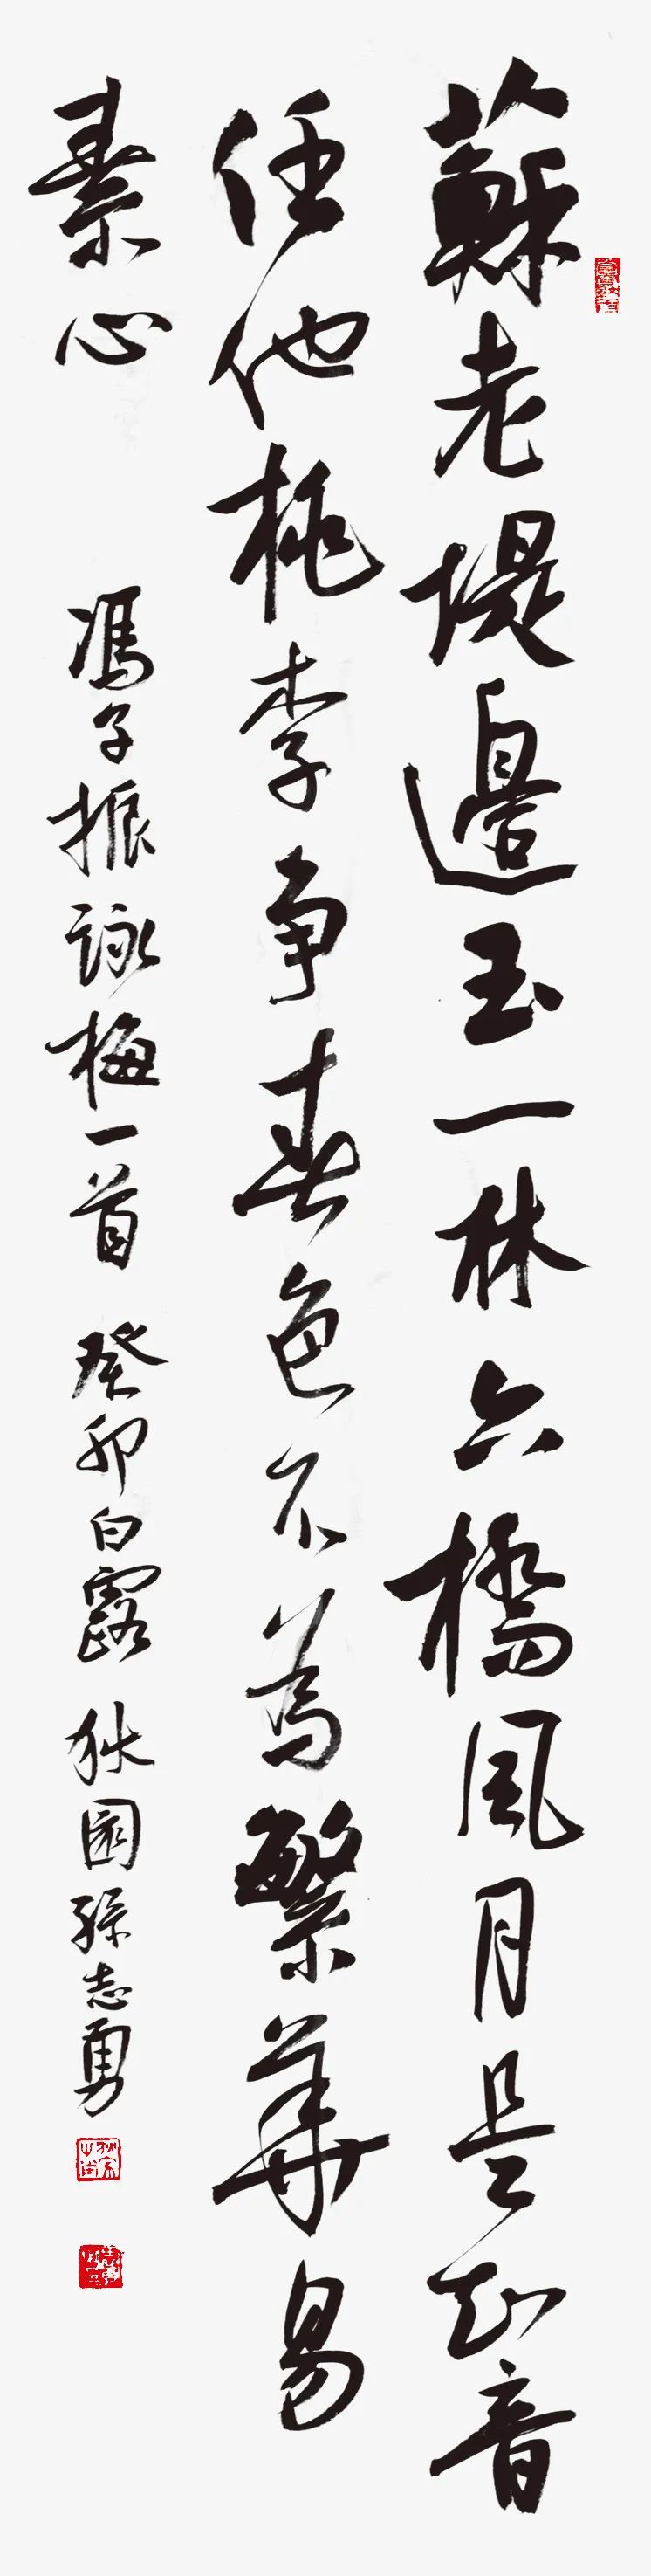 蘇老堤邊玉一林六橋風月是知音
任他桃李争春色不為繁華易
素心
馮子振詠梅一首 癸卯白露 狄園孫志勇